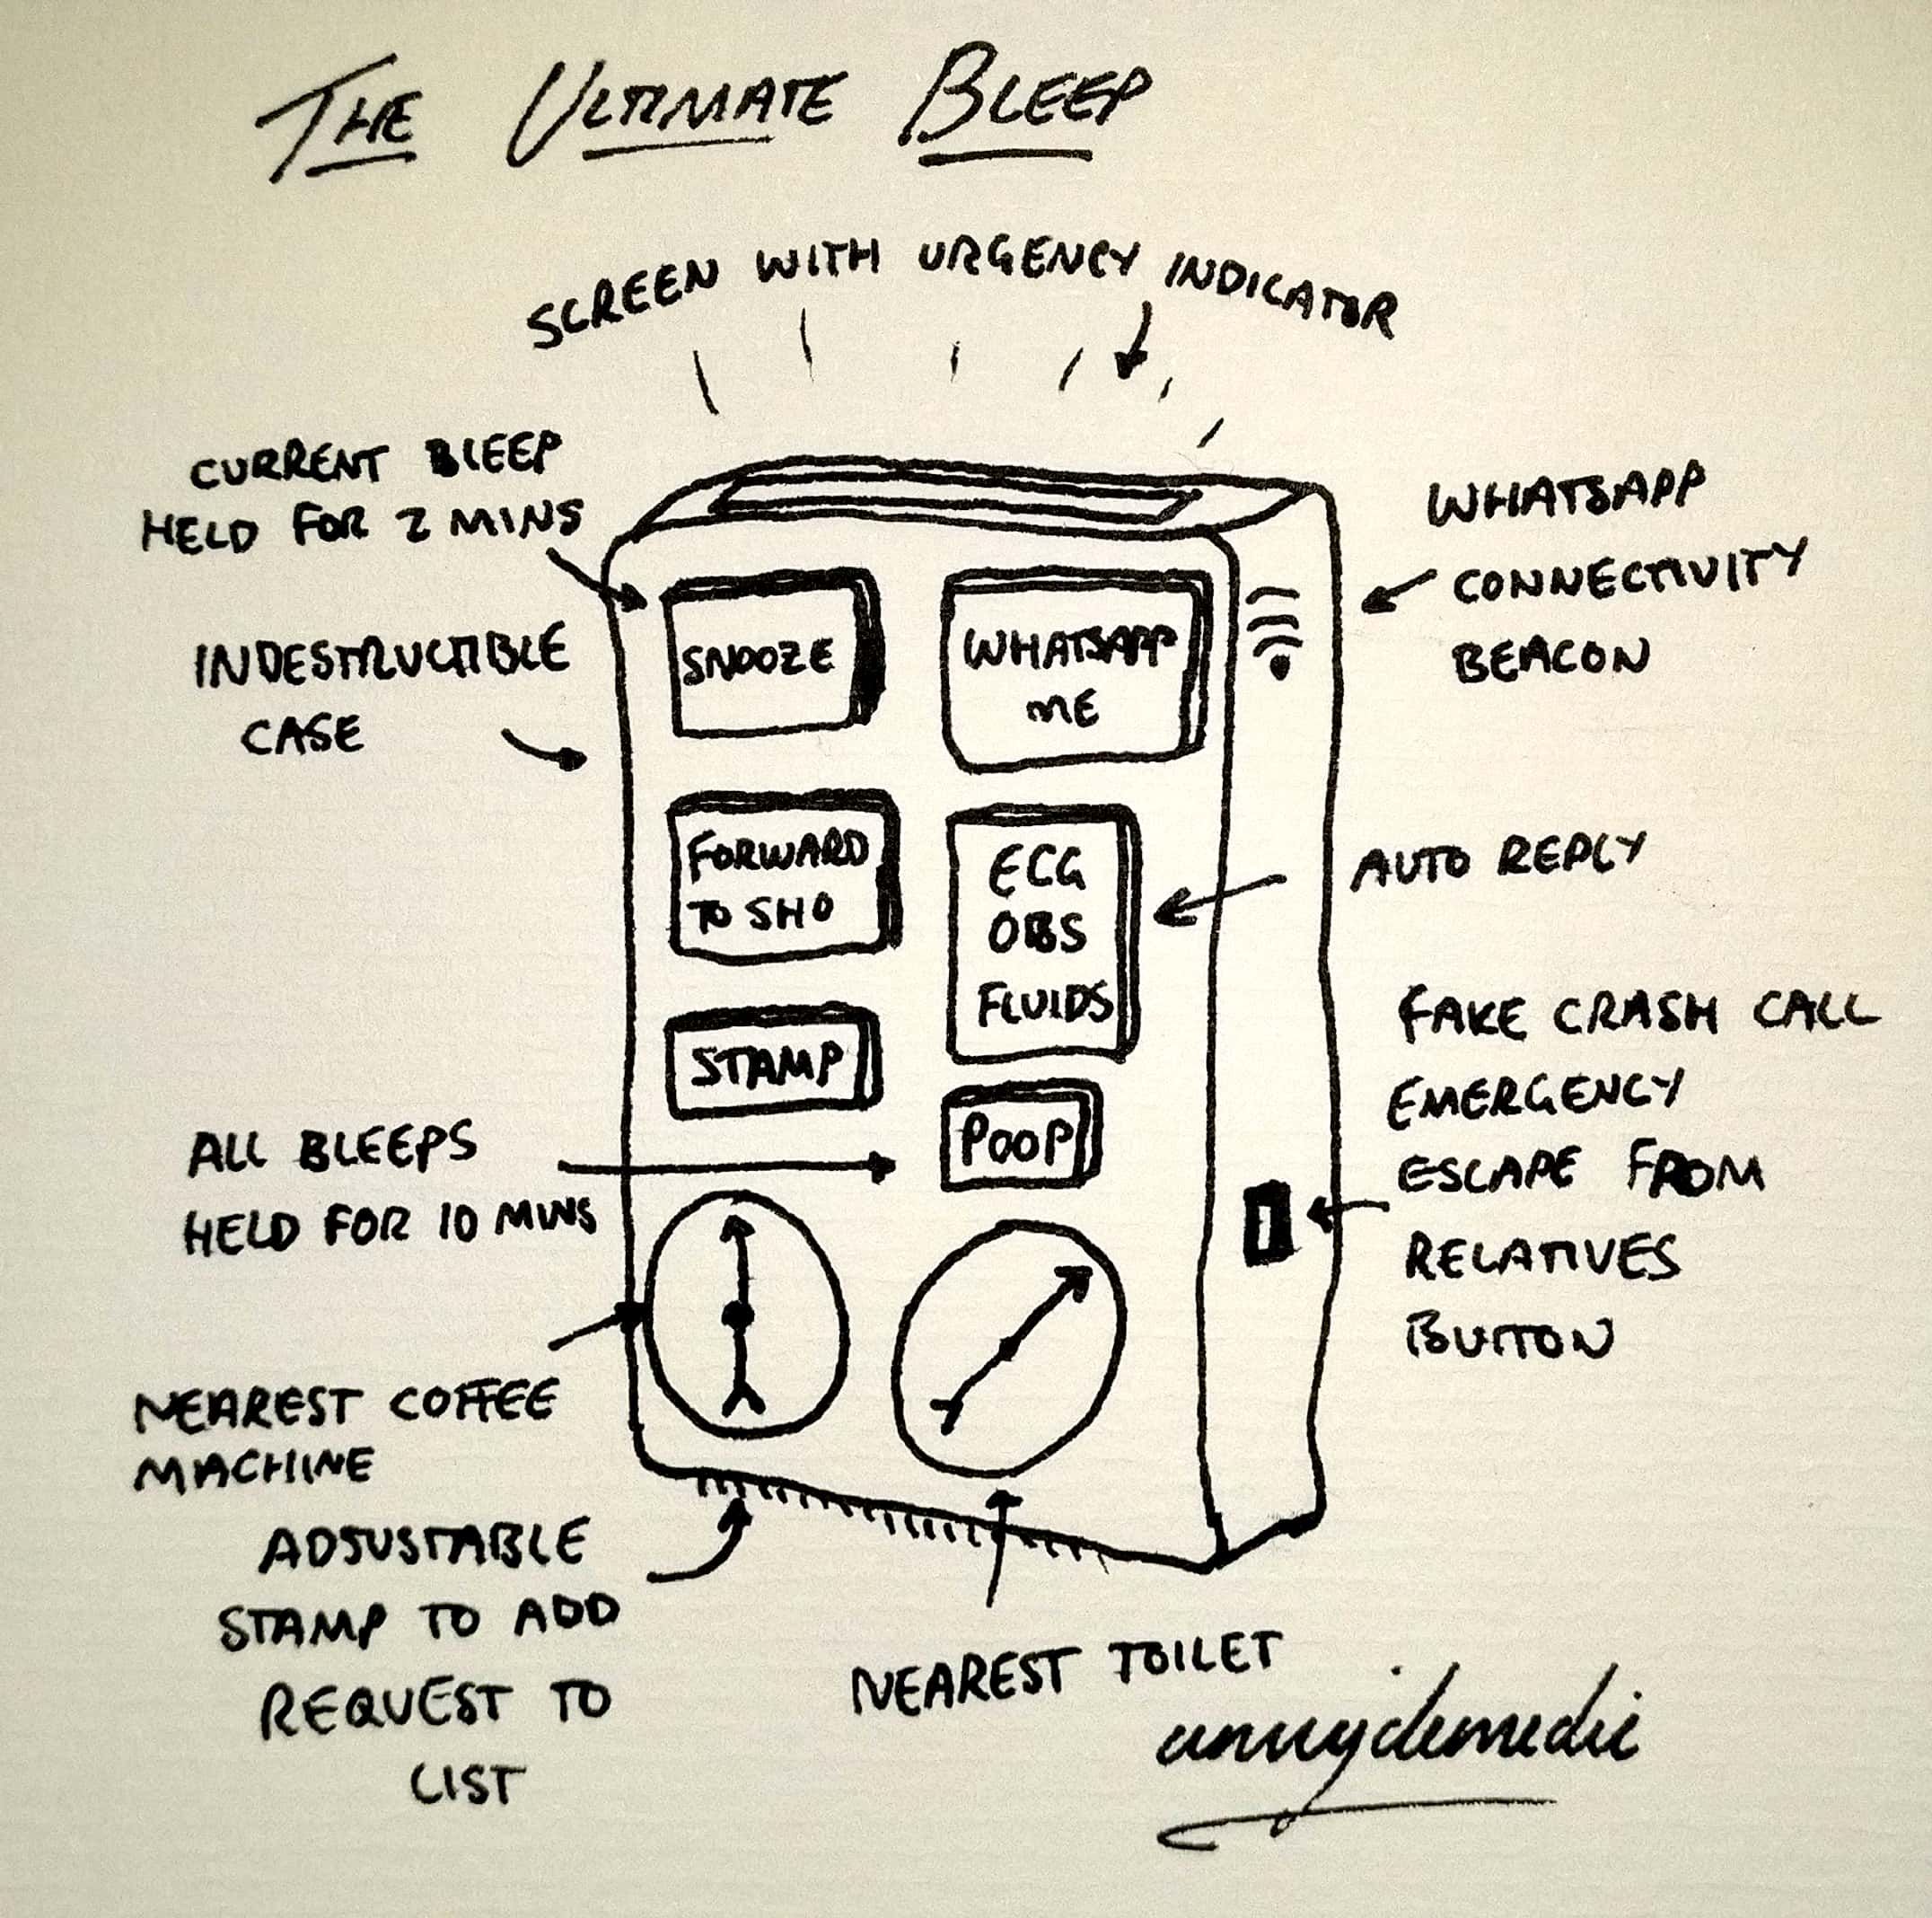 THE ULTIMATE BLEEP
SCREEN WITH URGENCY INDICATOR
CURRENT BLEEP
HELD FOR 2 MINS
WHATSAPP
CONNECTIVITY
BEACON
INDESTRUCTIBLE
CASE
SNOOZE
WHATSAPP
ME
FORWARD
TO SHO
ECG
OBS
FLUIDS
AUTO REPLY
STAMP
POOP
FAKE CRASH CALL
EMERGENCY
ESCAPE FROM
RELATIVES
BUTTON
ALL BLEEPS
HELD FOR 10 MINS
NEAREST COFFEE
MACHINE
ADJUSTABLE
STAMP TO ADD
REQUEST TO
LIST
NEAREST TOILET